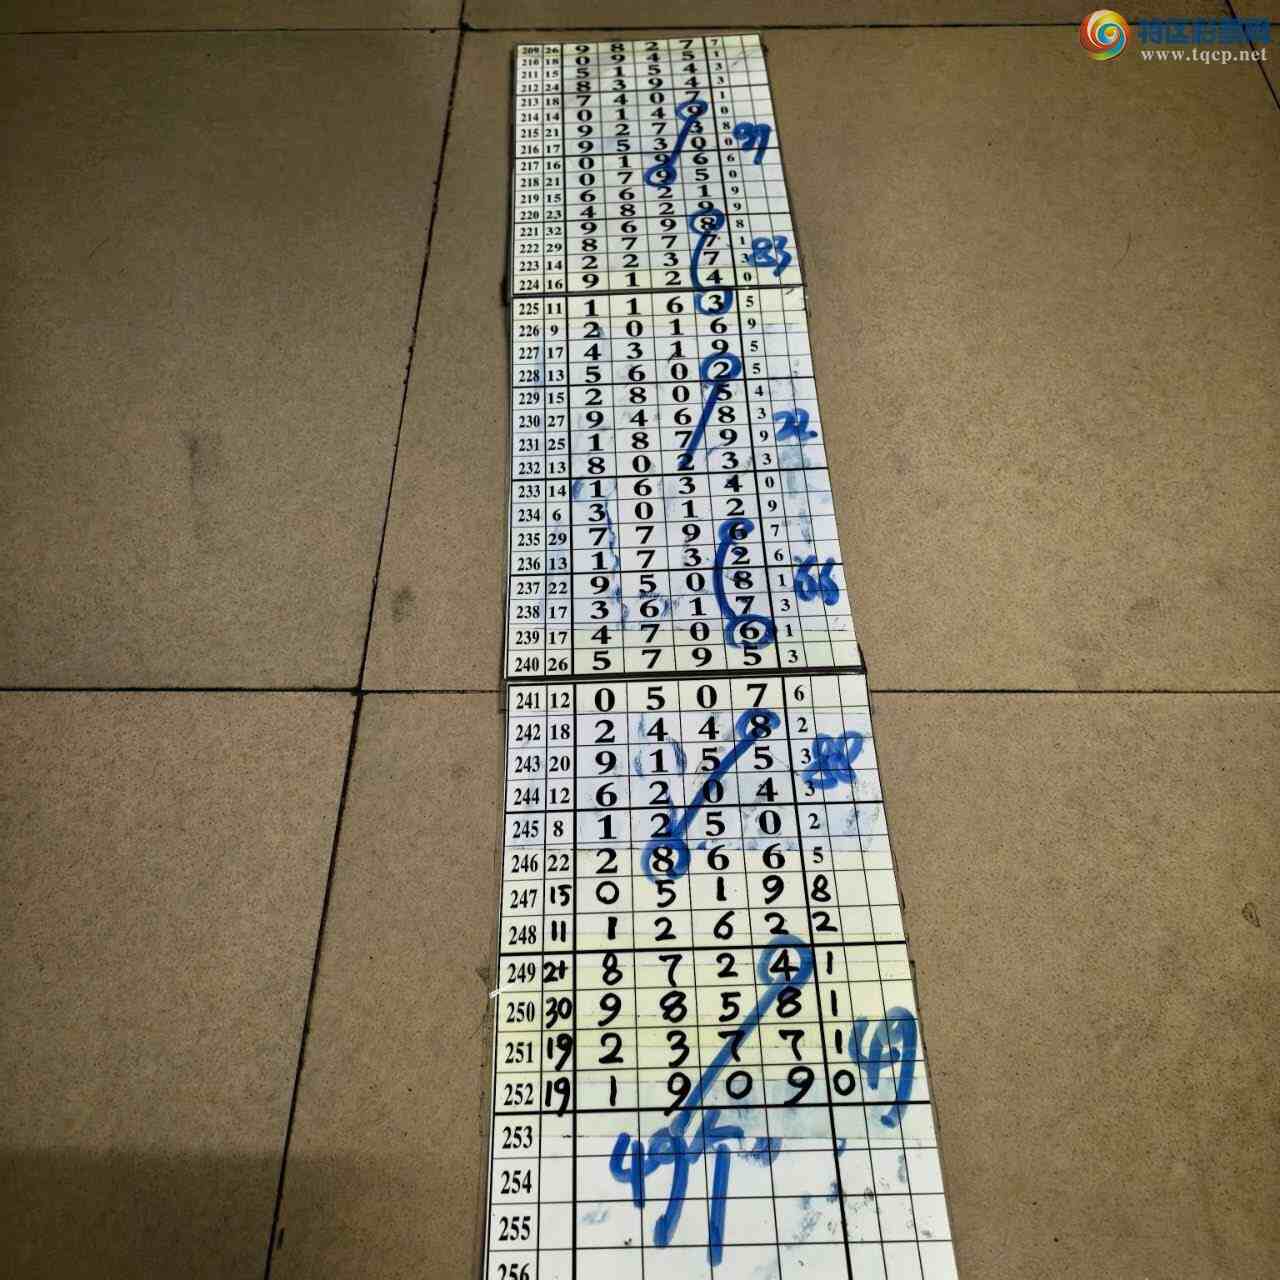 特区彩票网
www.tqcp.net
209 26 9 8 2 7 7
210 18 0 9 4 5 1
211 15 5 1 5 4 3
212 24 8 3 9 4 3
213 18 7 4 0 7 1
214 14 0 1 4 9 0
215 21 9 2 7 3 8
216 17 9 5 3 0 0
217 16 0 1 9 6 6
218 21 0 7 9 5 0
219 15 6 6 2 1 9
220 23 4 8 2 9 9
221 32 9 6 9 8 8
222 29 8 7 7 7 1
83
223 14 2 2 3 7 3
224 16 9 1 2 4 0
225 11 1 1 6 3 5
226 9 2 0 1 6 9
227 17 4 3 1 9 5
228 13 5 6 0 2 5
229 15 2 8 0 5 4
230 27 9 4 6 8 3
22
231 25 1 8 7 9 9
232 13 8 0 2 3 3
233 14 1 6 3 4 0
234 6 3 0 1 2 9
235 29 7 7 9 6 7
236 13 1 7 3 2 6
66
237 22 9 5 0 8 1
238 17 3 6 1 7 3
239 17 4 7 0 6 1
240 26 5 7 9 5 3
241 12 0 5 0 7 6
242 18 2 4 4 8 2
88
243 20 9 1 5 5 3
244 12 6 2 0 4 3
245 8 1 2 5 0 2
246 22 2 8 6 6 5
247 15 0 5 1 9 8
248 11 1 2 6 2 2
249 21 8 7 2 4 1
250 30 9 8 5 8 1
251 19 2 3 7 7 1
49
252 19 1 9 0 9 0
253
49
254
255
256